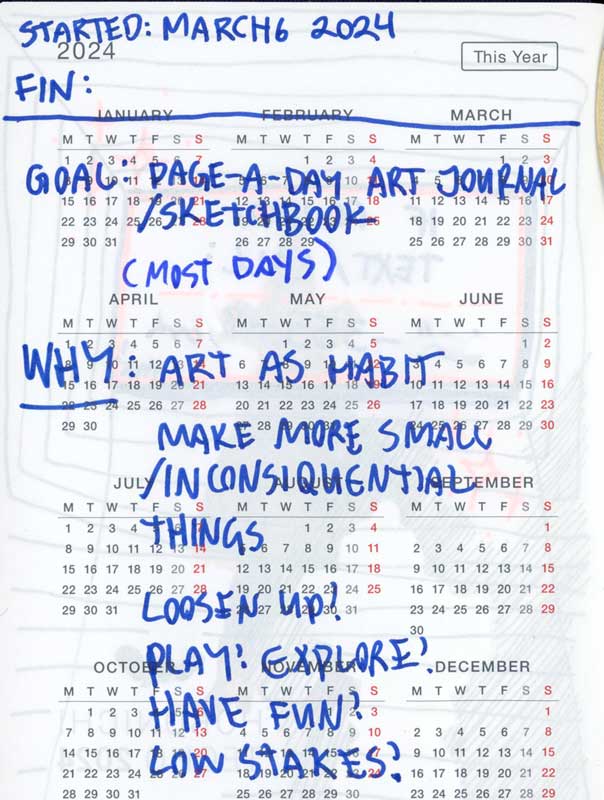 STARTED: MARCH 6 2024
2024
This Year
FIN:
GOAL: PAGE-A-DAY ART JOURNAL
/SKETCHBOOK
(MOST DAYS)
WHY: ART AS HABIT
MAKE MORE SMALL
/INCONSIQUENTIAL
THINGS
LOOSEN UP!
PLAY! EXPLORE!
HAVE FUN!
LOW STAKES!
JANUARY FEBRUARY MARCH
M T W T F S S M T W T F S S M T W T F S S
1 2 3 4 5 6 7 1 2 3 4 1 2 3
15 16 17 18 19 20 21 12 13 14 15 16 17 18 11 12 13 14 15 16 17
22 23 24 25 18 19 20 21 22 23 24
29 30 31 26 27 28 29 25 26 27 28 29 30 31
APRIL MAY JUNE
M T W T F S S M T W T F S S M T W T F S S
1 2 3 4 5 6 7 1 2 3 4 5 1 2
8 9 10 11 12 6 7 3 4 5 6 7 8 9
15 16 17 18 19 20 21 13 14 15 16 17 18 19 10 11 12 13 14 15 16
22 23 24 25 26 27 28 20 21 22 23 24 25 26 17 18 19 20 21 22 23
29 30 27 28 29 30 31 24 25 26 27 28 29 30
JULY AUGUST SEPTEMBER
M T W T F S S M T W T F S S M T W T F S S
1 2 3 4 5 1 2 3 4 1
8 9 10 11 12 13 14 5 6 7 8 9 10 11 2 3 4 5 6 7 8
15 16 17 18 19 20 21 12 13 14 15 16 17 18 9 10 11 12 13 14 15
22 23 24 25 26 27 28 19 20 21 22 23 24 25 16 17 18 19 20 21 22
29 30 31 26 27 28 29 30 31 23 24 25 26 27 28 29
30
OCTOBER NOVEMBER DECEMBER
M T W T F S S M T W T F S S M T W T F S S
1 2 3 4 5 6 1 2 3 1
7 8 9 10 11 12 13 4 5 6 7 8 9 10 2 3 4 5 6 7 8
14 15 16 17 18 19 20 11 12 13 14 15 16 17 9 10 11 12 13 14 15
21 22 23 24 25 26 27 18 19 20 21 22 23 24 16 17 18 19 20 21 22
28 29 30 31 25 26 27 28 29 30 23 24 25 26 27 28 29